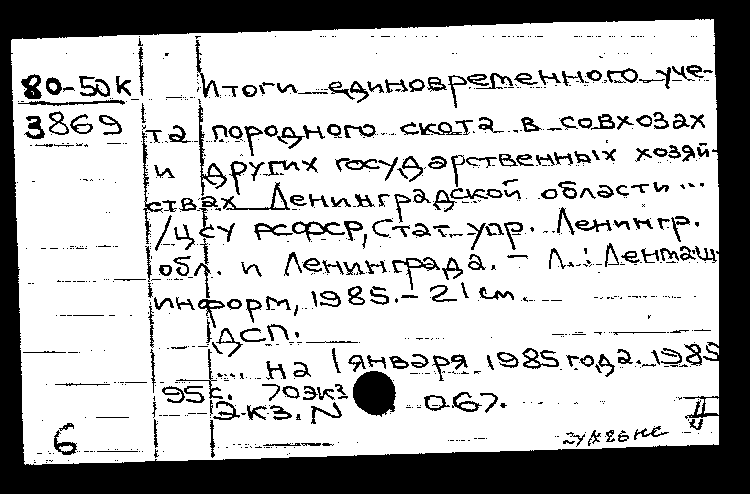 80-50к
3869
Итоги единовременного уче-
та породного скота в совхозах
и других государственных хозяй-
ствах Ленинградской области ...
/ЦСУ РСФСР, Стат. упр. Ленингр.
обл. и Ленинграда. - Л.: Ленмаш-
информ, 1985. - 21 см.
ДСП.
... на 1 января 1985 года. 1985
95 с. 70 экз
Экз. N 067.
6